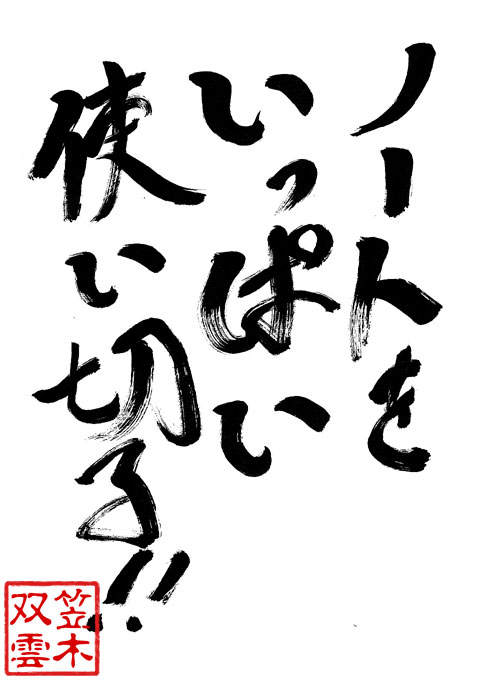 ノートを
いっぱい
使い切る!!
笠木
双雲